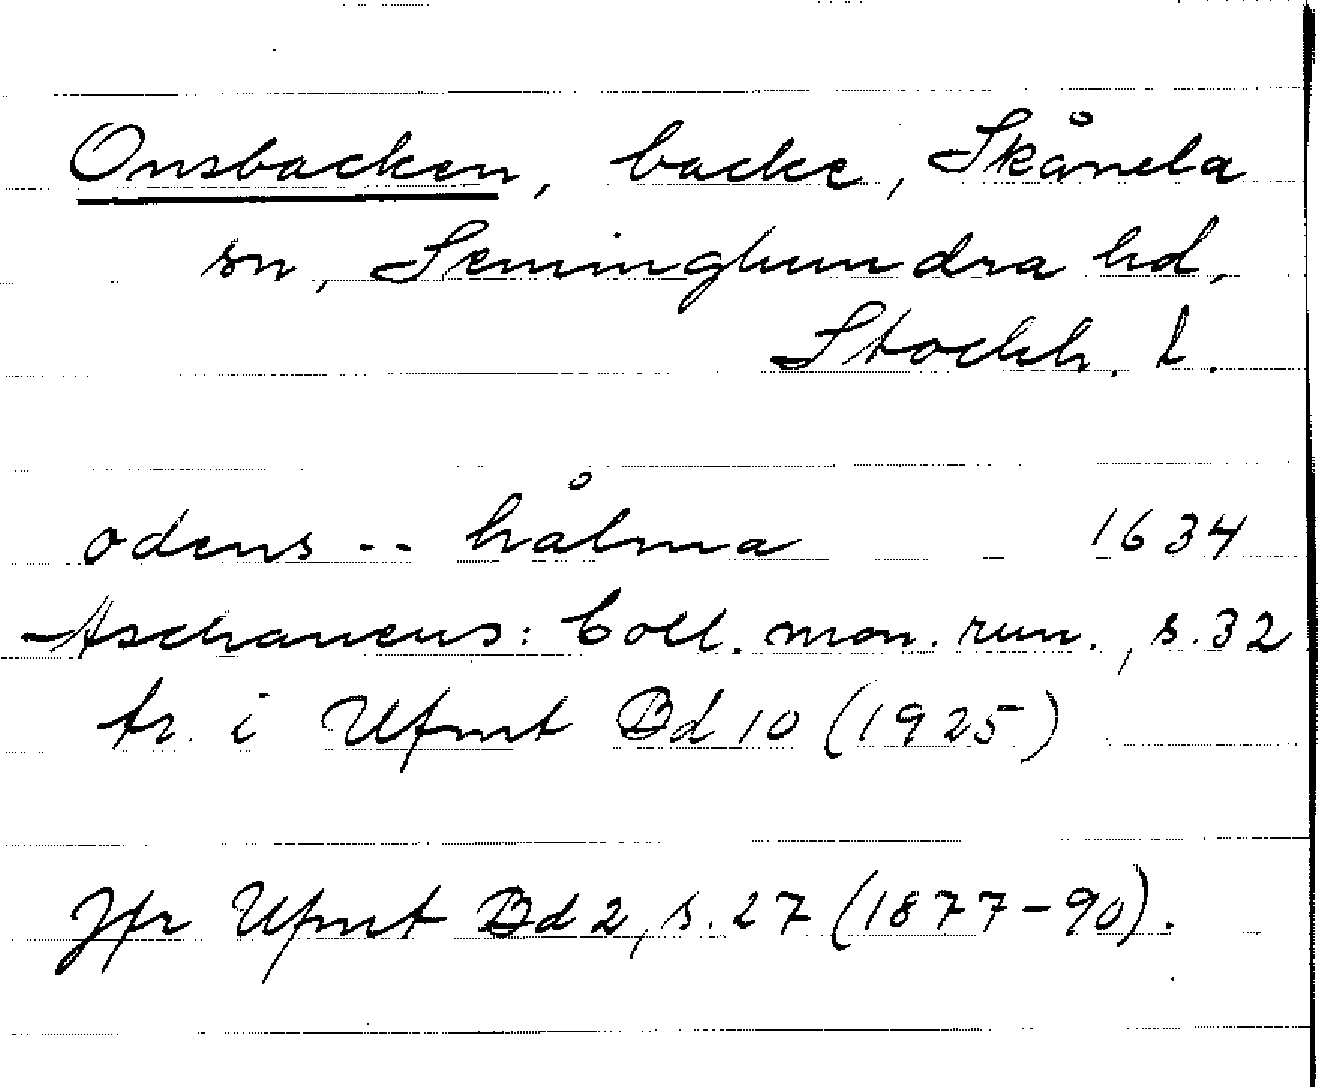 Onsbacken, backe, Skånela
sn, Seminghundra hd,
Stockh. l.
odens -- hålma 1634
Aschaneus: Coll. mon. run., s. 32
tr. i Ufmt Bd 10 (1925)
Jfr Ufmt Bd 2, s. 27 (1877-90).